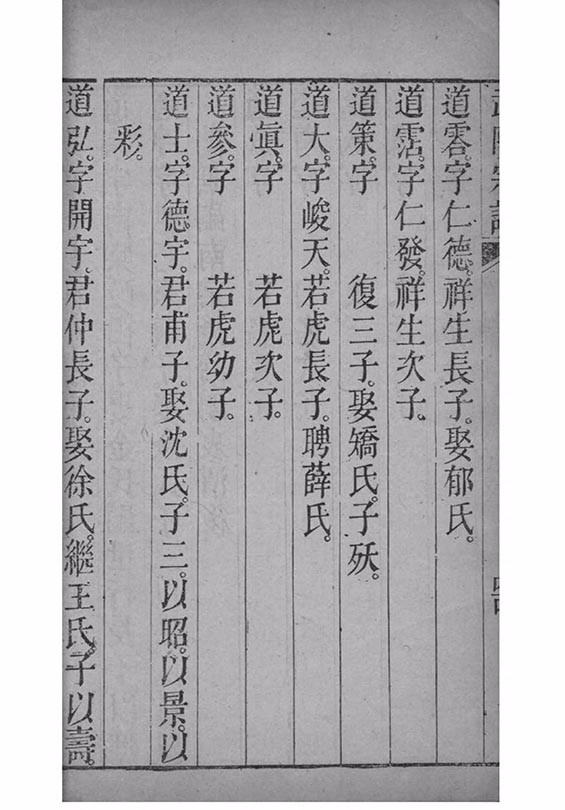 道雺。字仁德。祥生長子。娶郁氏。
道霑。字仁發。祥生次子。
道策。字　復三子。娶矯氏。子殀。
道大。字峻天。若虎長子。聘薛氏。
道眞。字　若虎次子。
道參。字　若虎幼子。
道士。字德宇。君甫子。娶沈氏。子三。以昭。以景。以
彩。
道弘。字開宇。君仲長子。娶徐氏。繼王氏。子以壽。